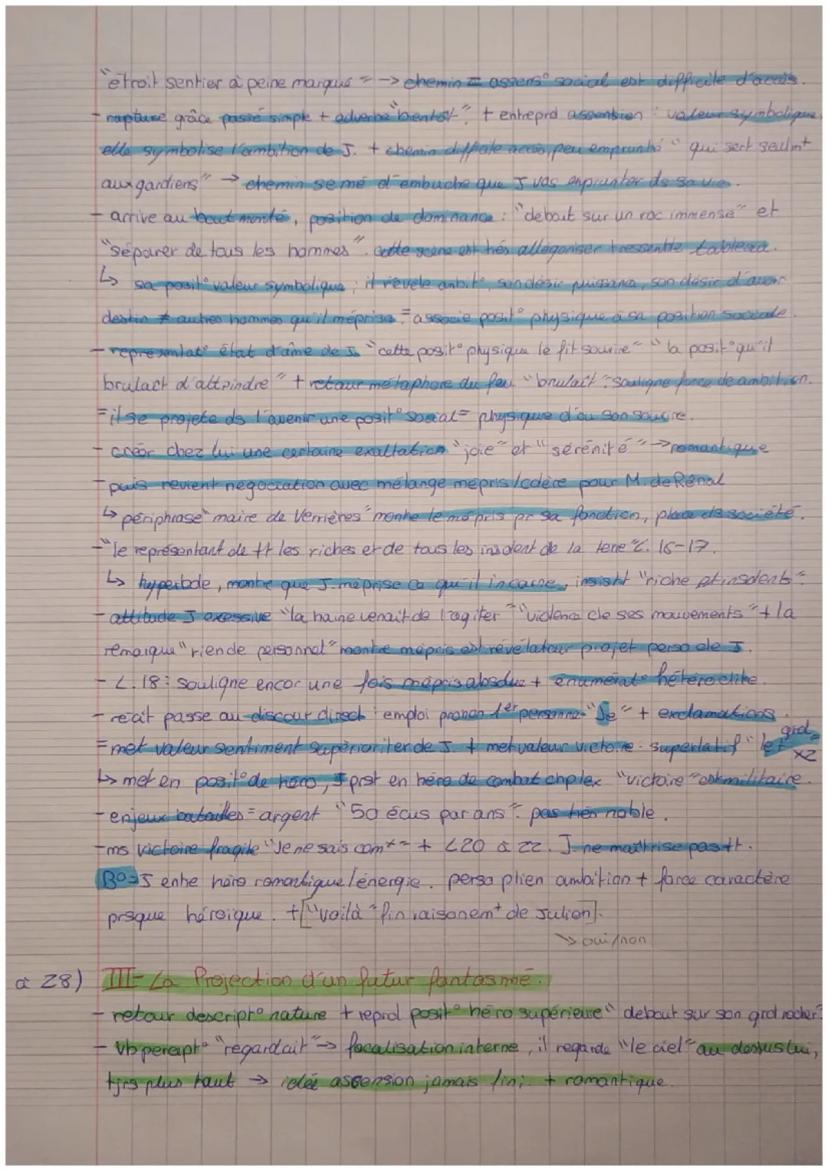 "étroit sentier à peine marqué" -> chemin = ascens° social est difficile d'accès.
- rupture grâce passé simple + adverbe "bientôt" + entreprd ascension : valeur symbolique,
elle symbolise l'ambition de J. + chemin difficile accès, peu emprunté "qui sert seulmt
aux gardiens" → chemin semé d'embuche que J vas emprunter ds sa vie.
- arrive au haut monté, position de dominance : "debout sur un roc immense" et
"séparer de tous les hommes". cette scène est très allégoriser ressemble tableau.
↳ sa posit° valeur symbolique ; il révèle ambit°, son désir puissance, son désir d'avoir
destin ≠ autres hommes qu'il méprise = associe posit° physique à sa position sociale.
- représentat° état d'âme de J. "cette posit° physique le fit sourire" "la posit° qu'il
brulait d'atteindre" + retour métaphore du feu "brulait" : souligne force de ambition.
= il se projete ds l'avenir une posit° social = physique d'où son sourire.
- créer chez lui une certaine exaltation "joie" et "sérénité" → romantique
- puis revient négociation avec mélange mépris/colère pour M. de Rênal
↳ périphrase "maire de Verrières" montre le mépris pr sa fonction, place ds société.
- "le représentant de tt les riches et de tous les insolent de la terre" L. 16-17.
↳ hyperbole, montre que J. méprise ce qu'il incarne, insist "riche et insolents".
- attitude J excessive "la haine venait de l'agiter" "violence de ses mouvements" + la
remarque "rien de personnel" montre mépris est révélateur projet perso de J.
- L. 18 : souligne encor une fois mépris absolue + énumérat° hétéroclite
- récit passe au discour direct : emploi pronon 1er personne "Je" + exclamations
= met valeur sentiment supérioriter de J. + met valeur victoire. superlatif "le + grd"
x2
↳ met en posit° de héro, "victoire" est militaire.
- enjeux batailles = argent "50 écus par ans". pas très noble.
- ms victoire fragile "Je ne sais com" + L20 à 22. J. ne maîtrise pas tt.
B° = J entre héro romantique/énergie. perso plien ambition + force caractère
presque héroïque. + ["voilà" fin raisonemt de Julien].
↘ oui/non
à 28) III- La Projection d'un futur fantasmé.
- retour descript° nature + reprd posit° héro supérieure "debout sur son grd rocher"
- vb percept° "regardait" → focalisation interne, il regarde "le ciel" au dessus lui,
tjrs plus haut → idée ascension jamais fini + romantique.